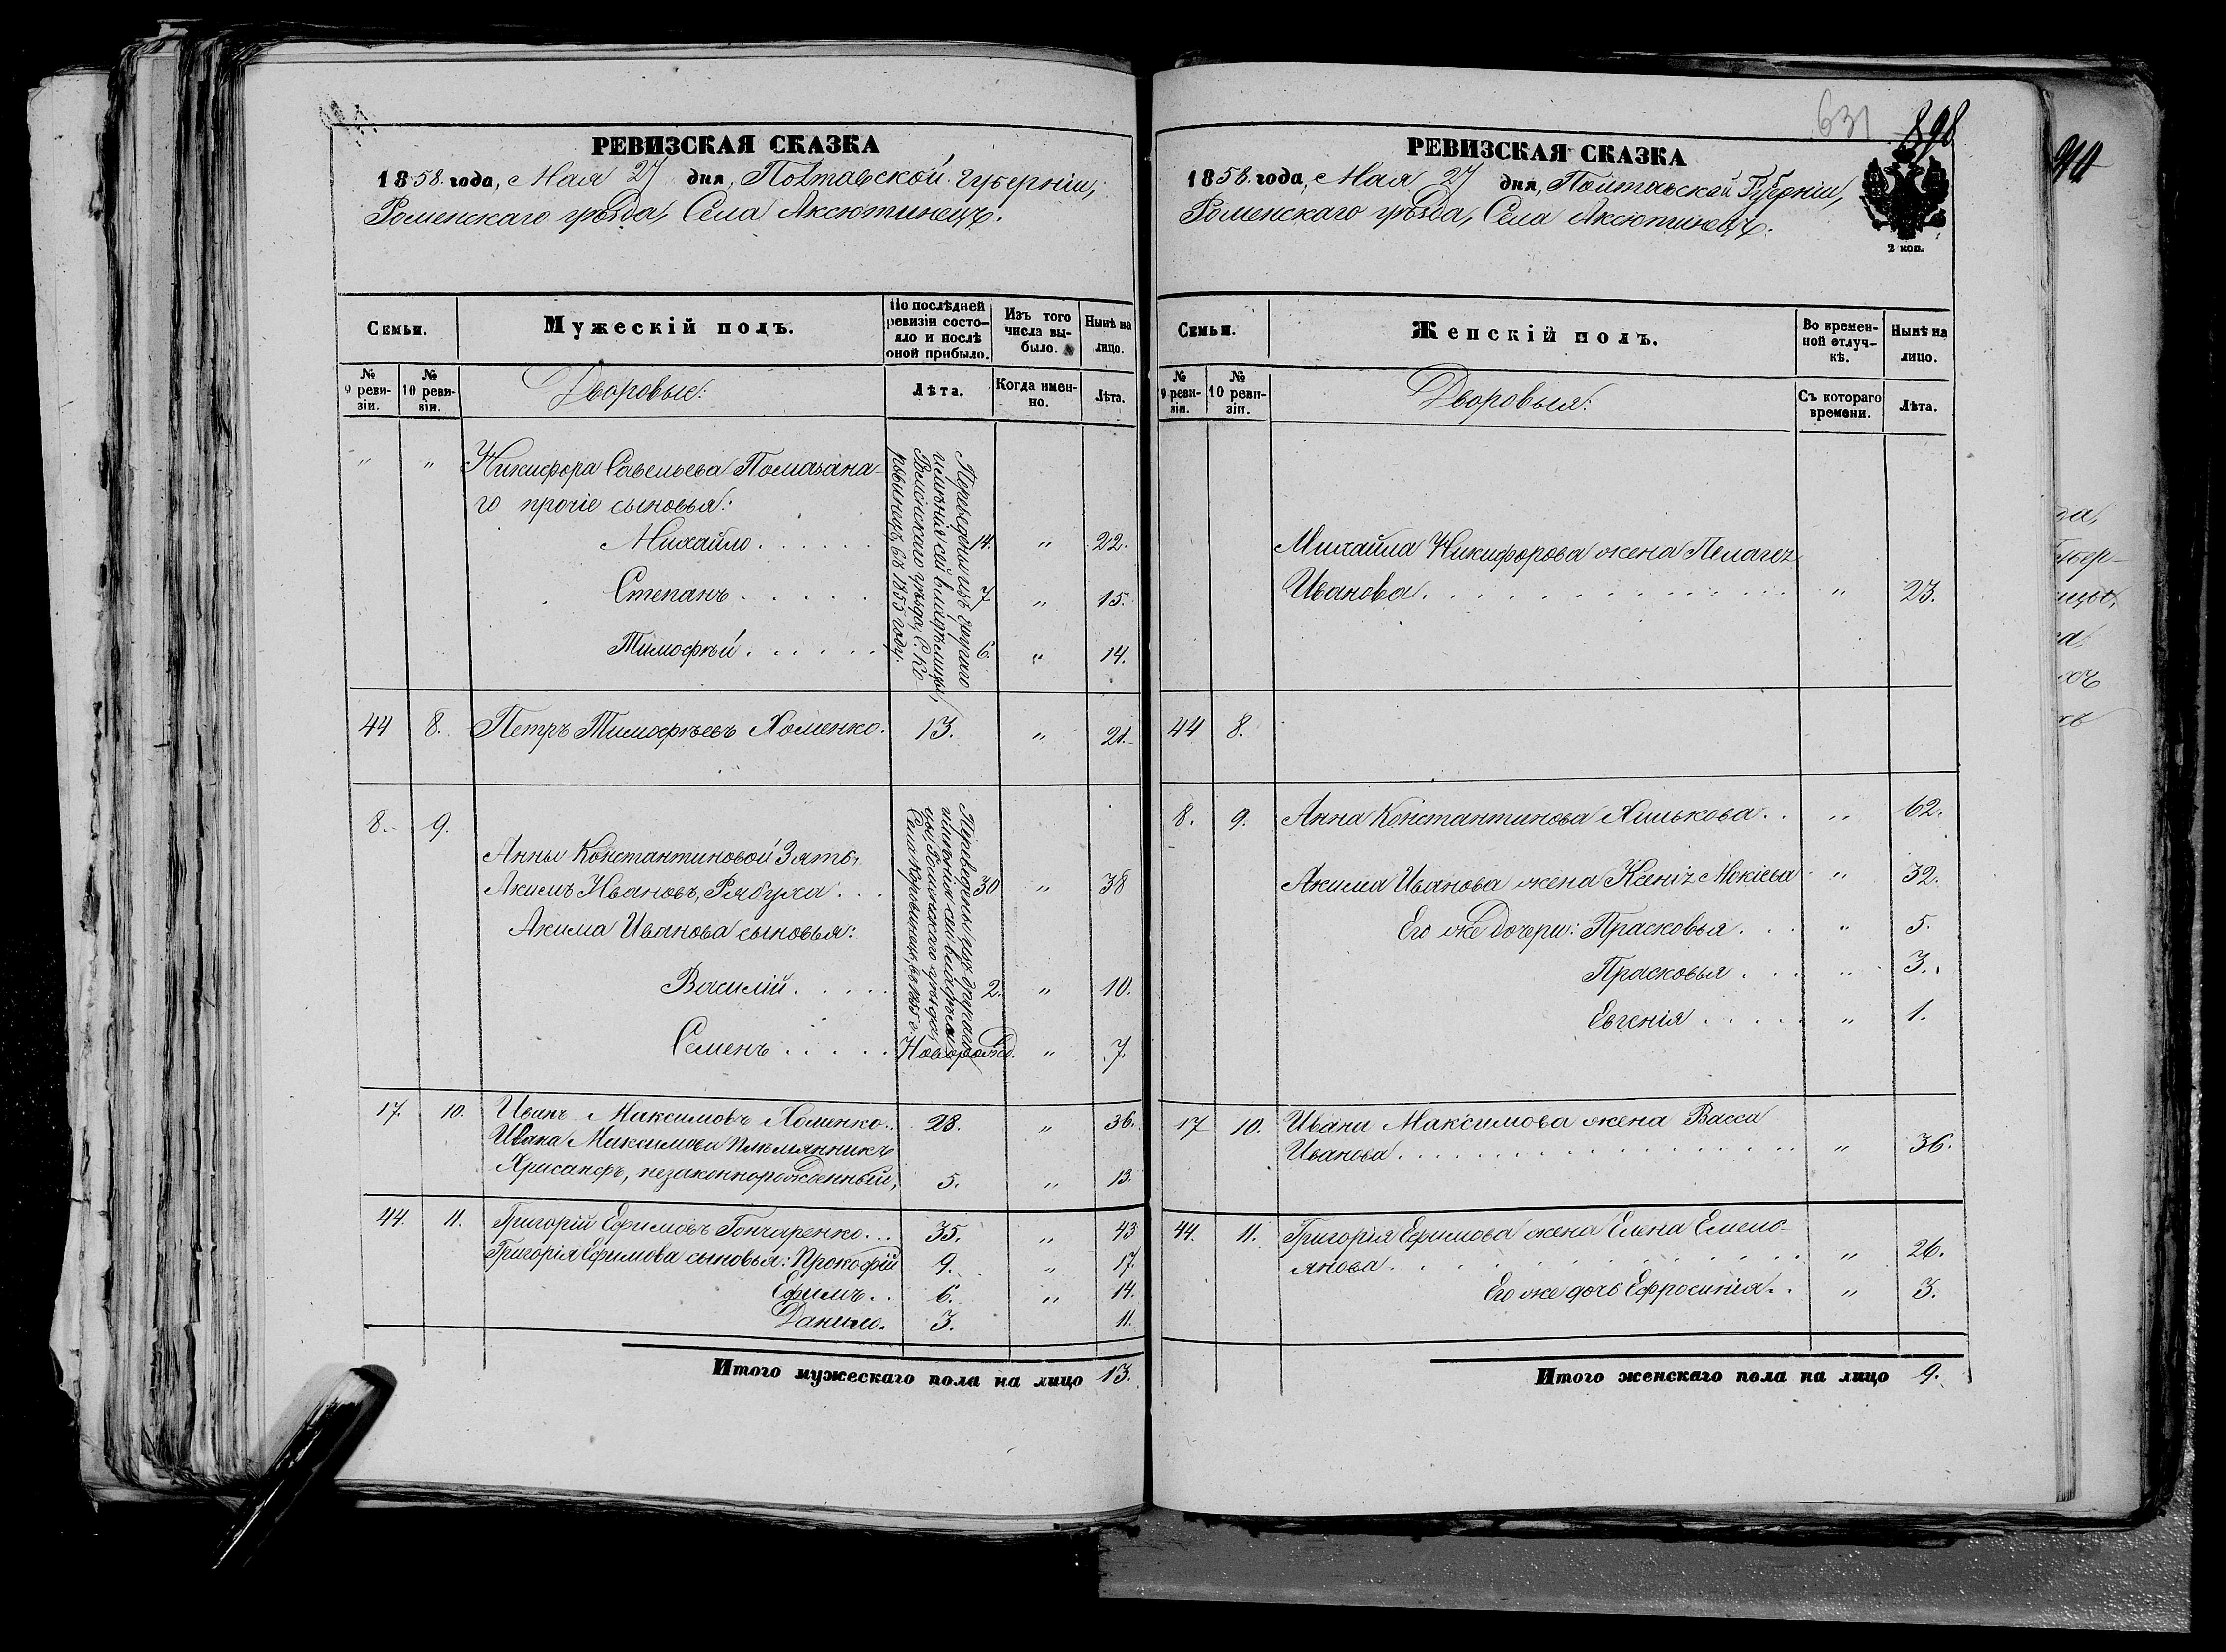 РЕВИЗСКАЯ СКАЗКА
1858 года, Мая 27 дня, Полтавской губерніи,
Роменскаго уѣзда, Села Аксютинецъ.
Семьи.
Мужескій полъ.
По послѣдней ревизіи состояло и послѣ оной прибыло.
Изъ того числа выбыло.
Нынѣ на лицо.
№ 9 ревизіи.
№ 10 ревизіи.
Дворовые:
Лѣта.
Когда именно.
Лѣта.
" " Никифора Савельева Помазана-
го прочіе сыновья:
Михайло . . . . . 14. " 22.
Степанъ . . . . . 7. " 15.
Тимофѣй . . . . . 6. " 14.
Переведены изъ другаго
имѣнія сей владѣлицы,
уѣзда, С. Ко-
ровинецъ въ 1855 году.
44 8. Петръ Тимофѣевъ Хоменко. 13. " 21.
8. 9.
Анны Константиновой Зять,
Акимъ Ивановъ, Рябуха . . . 30 " 38
Акима Иванова сыновья:
Василій . . . . . 2. " 10.
Семенъ . . . . . Новорожд. " 7.
Переведены изъ другаго
имѣнія сей владѣлицы
Роменскаго уѣзда,
Села Коровинецъ, въ 1855 г.
17. 10. Иванъ Максимовъ Хоменко.. 28. " 36.
Ивана Максимова племянникъ
Хрисанфъ, незаконнорожденный, 5. " 13.
44. 11. Григорій Ефимовъ Гончаренко... 35. " 43
Григорія Ефимова сыновья: Прокофій 9. " 17.
Ефимъ. . 6. " 14.
Данило. 3. 11.
Итого мужескаго пола на лицо 13.
631 898
РЕВИЗСКАЯ СКАЗКА
1858 года, Мая 27 дня, Полтавской Губерніи,
Роменскаго уѣзда, Села Аксютинецъ.
2 коп.
Семьи.
Женскій полъ.
Во временной отлучкѣ.
Нынѣ на лицо.
№ 9 ревизіи.
№ 10 ревизіи.
Дворовыя:
Съ котораго времени.
Лѣта.
Михайла Никифорова жена Пелагея
Иванова . . . . . . . . . . " 23.
44 8.
8. 9. Анна Константинова Хилькова . . " 62.
Акима Иванова жена Ксенія Мокіева " 32.
Его же Дочери: Прасковья . . . " 5.
Прасковья . . . " 3.
Евгенія . . . . . " 1.
17 10. Ивана Максимова жена Васса
Иванова . . . . . . . . . . " 36.
44. 11. Григорія Ефимова жена Елена Емель-
янова . . . . . . . . . . " 26.
Его же дочь Ефросинія. . " 3.
Итого женскаго пола на лицо 9.